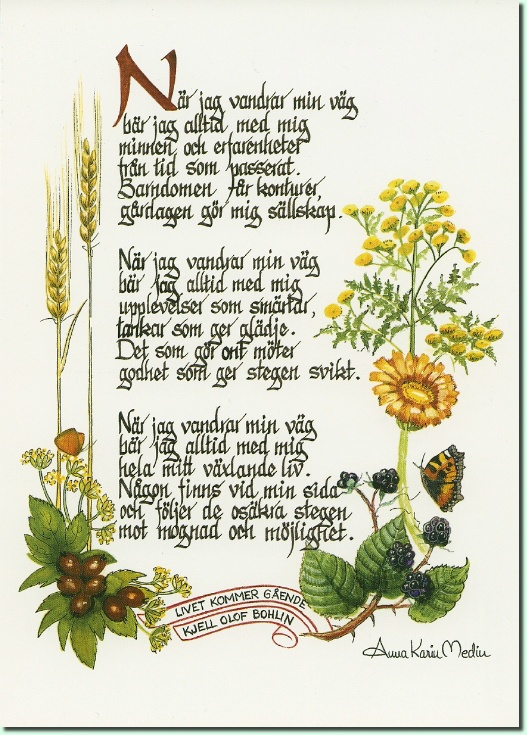 När jag vandrar min väg
bär jag alltid med mig
minnen och erfarenheter
från tid som passerat.
Barndomen får konturer,
gårdagen gör mig sällskap.
När jag vandrar min väg
bär jag alltid med mig
upplevelser som smärtar,
tankar som ger glädje.
Det som gör ont möter
godhet som ger stegen svikt.
När jag vandrar min väg
bär jag alltid med mig
hela mitt växlande liv.
Någon finns vid min sida
och följer de osäkra stegen
mot mognad och möjlighet.
LIVET KOMMER GÅENDE
KJELL OLOF BOHLIN
Anna Karin Medin